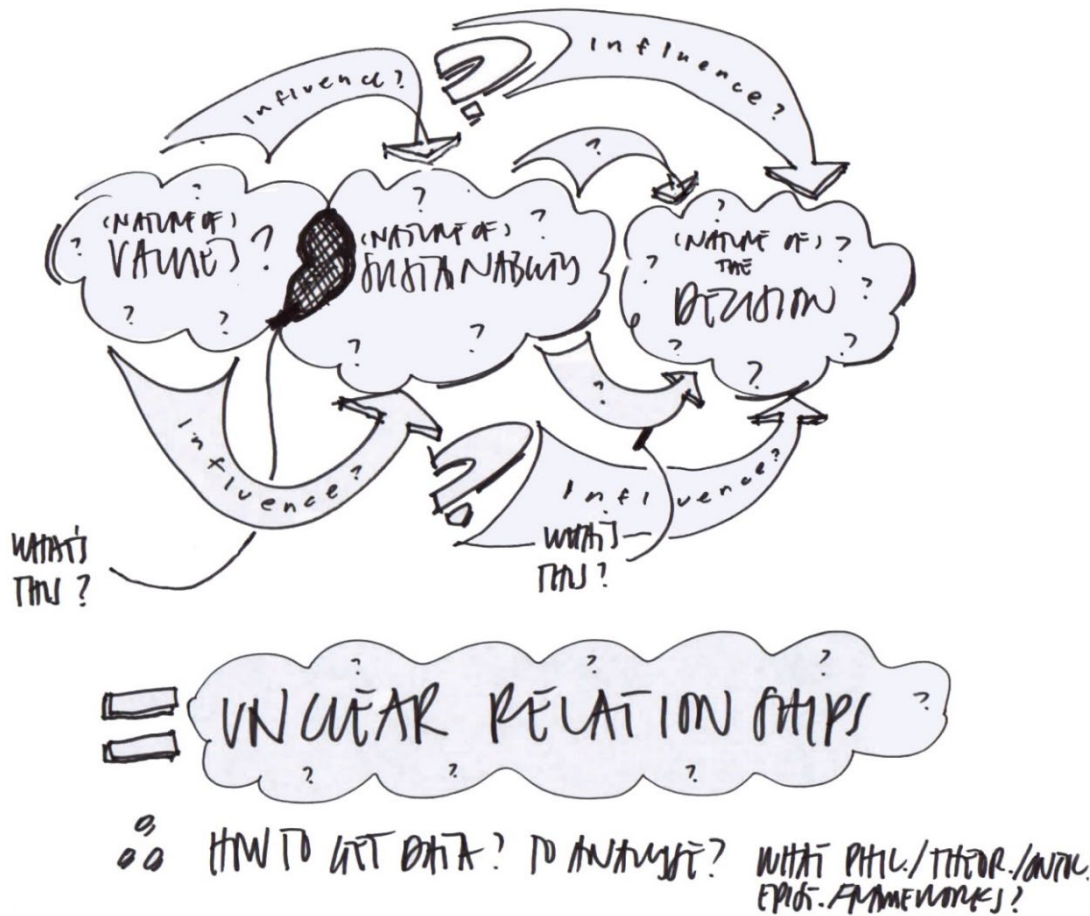 Influence?
Influence?
?
?
(NATURE OF)
VALUES
?
?
?
?
?
(NATURE OF)
SUSTAINABILITY
?
?
?
?
?
(NATURE OF)
THE
DECISION
?
?
?
?
?
?
?
?
?
Influence?
?
?
Influence?
WHAT'S
THIS?
WHAT'S
THIS?
= UNCLEAR RELATIONSHIPS
?
?
?
?
?
?
?
∴ HOW TO GET DATA? TO ANALYSE? WHAT PHIL./THEOR./ONTOL.
EPIST. FRAMEWORKS?